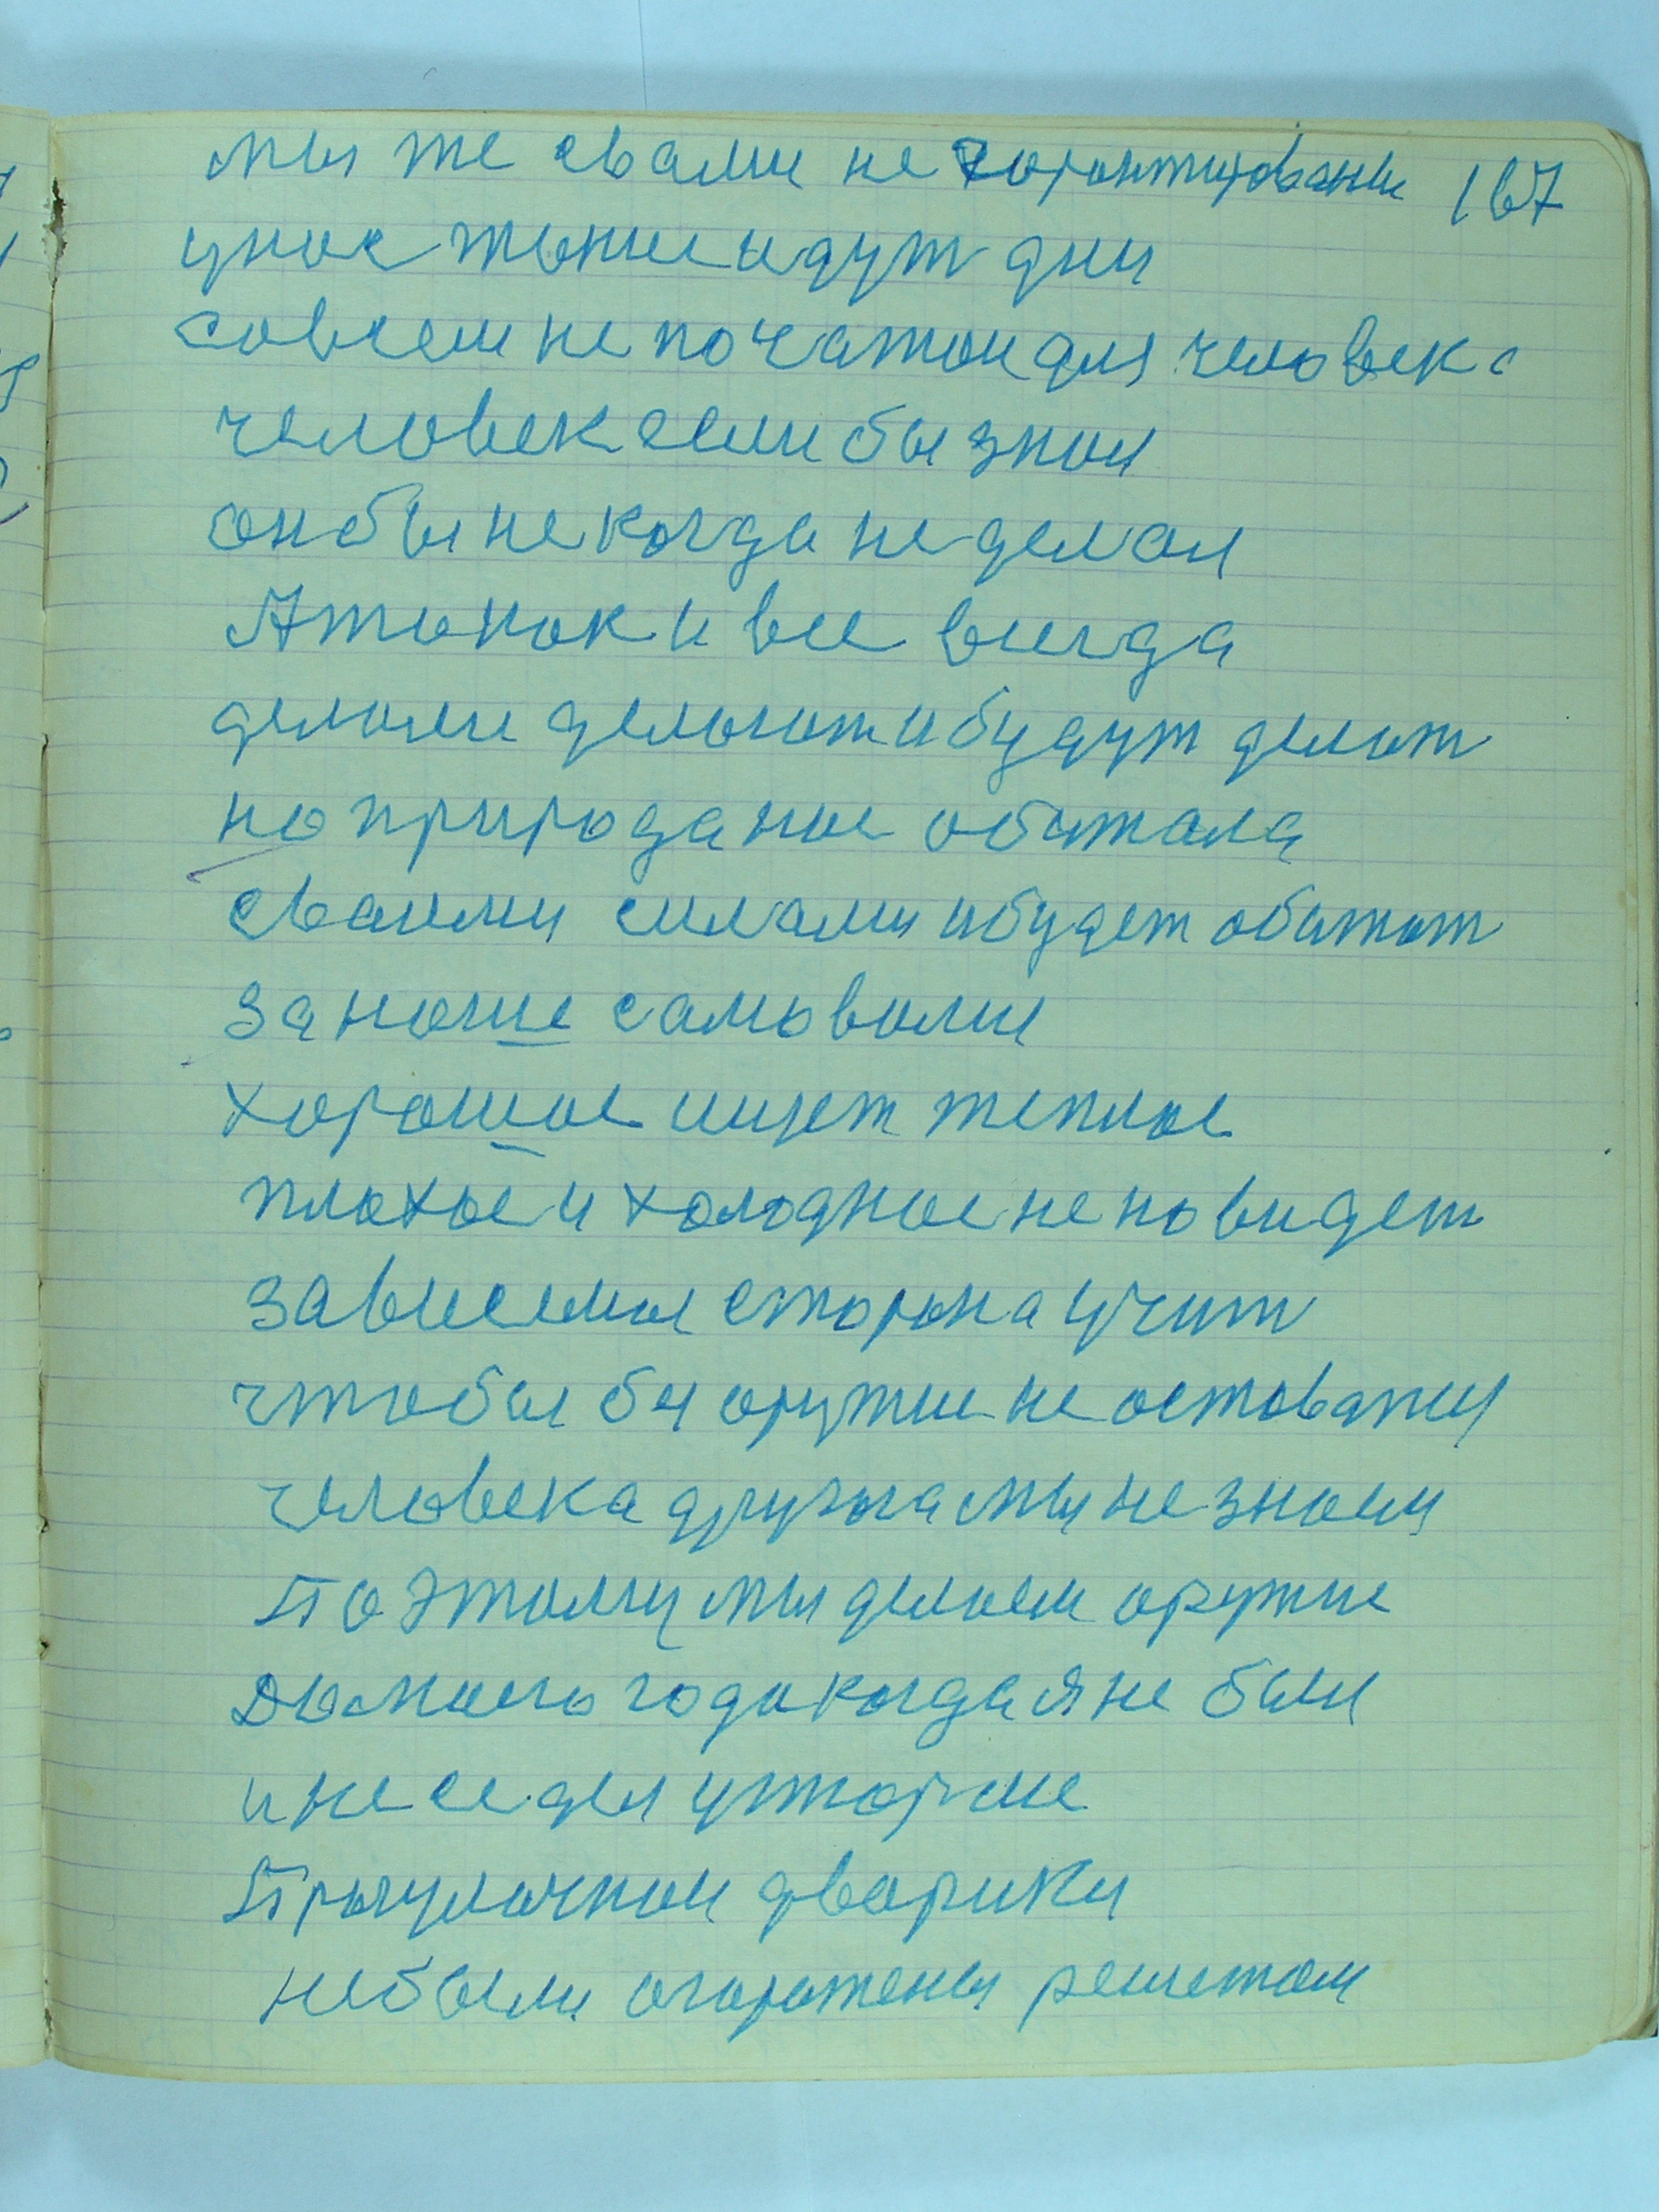 мы же свами не горантированы 167
унас тоже идут дни
совсем не початои для человека
человек если бы знал
он бы некогда не делал
А то как и все всегда
делали делают и будут делат
но природа нас обижала
сваими силами и будет обижат
за наше самоволия
хорошое ищет теплое
плохое и холодное не новидет
зависемая сторона учит
чтобы бы оружие не оставатся
человека друга мы не знаем
Поэтому мы делаем оружие
Домоего года когда я не был
и не седел утюрме
Прогулачнаи дварики
небыли огорожены решетам